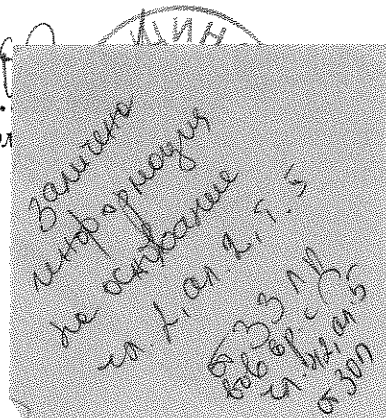 МИН
Заличена
информация
на основание
чл. 2, ал. 2, т. 5
от ЗЗЛД
във вр. с
чл. 42, ал. 5
от ЗОП